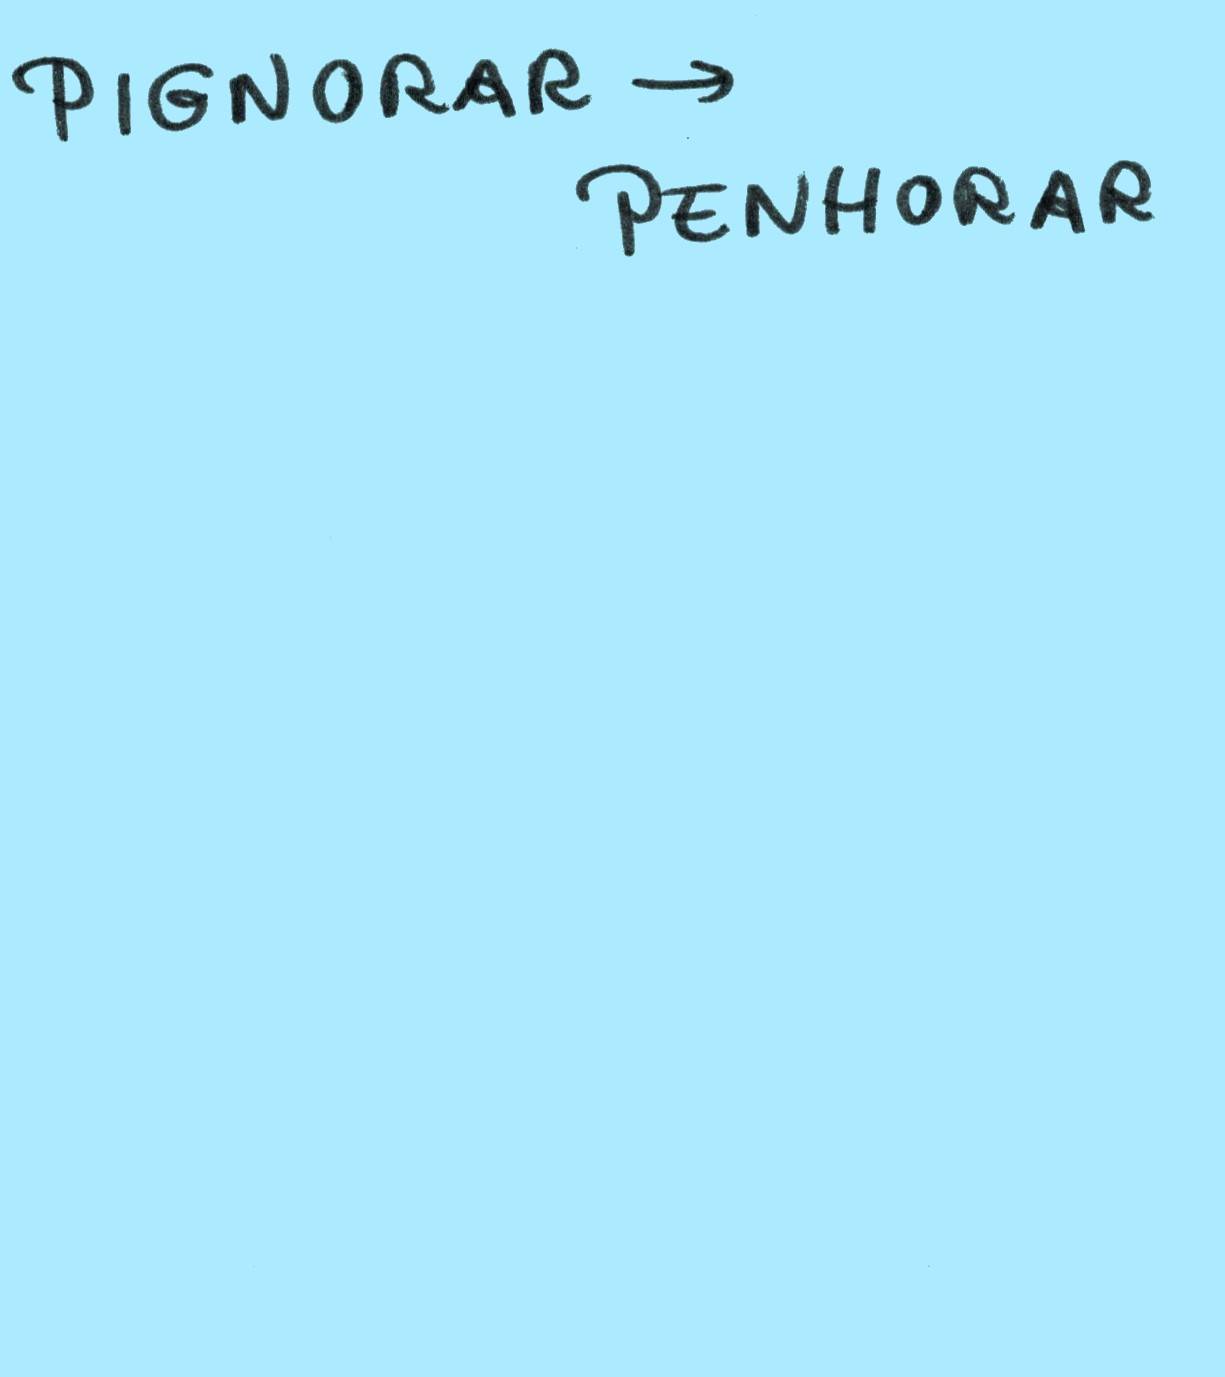 PIGNORAR →
PENHORAR